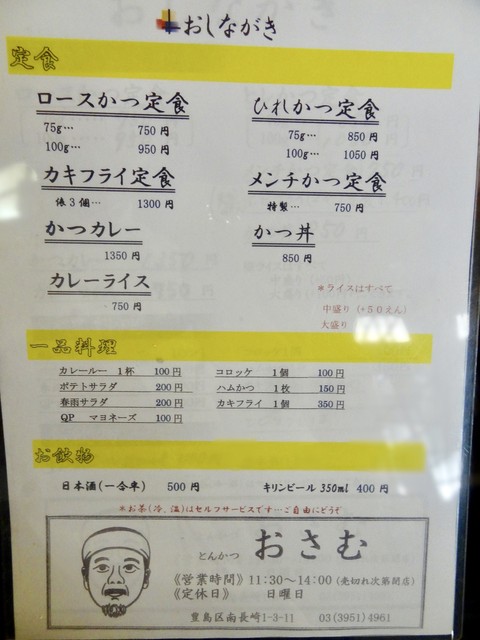 おしながき
定食
ロースかつ定食
75g… 750 円
100g… 950 円
ひれかつ定食
75g… 850 円
100g… 1050 円
カキフライ定食
俵３個… 1300 円
メンチかつ定食
特製… 750 円
かつカレー
1350 円
かつ丼
850 円
カレーライス
750 円
＊ライスはすべて
中盛り (+５０えん)
大盛り
一品料理
カレールー １杯 100 円
ポテトサラダ 200 円
春雨サラダ 200 円
QP マヨネーズ 100 円
コロッケ １個 100 円
ハムかつ １枚 150 円
カキフライ １個 350 円
お飲物
日本酒(一合半) 500 円
キリンビール 350ml 400 円
＊お茶(冷、温)はセルフサービスです…ご自由にどうぞ
とんかつ おさむ
《営業時間》11:30～14:00 (売切れ次第閉店)
《定休日》 日曜日
豊島区南長崎1-3-11 03(3951)4961